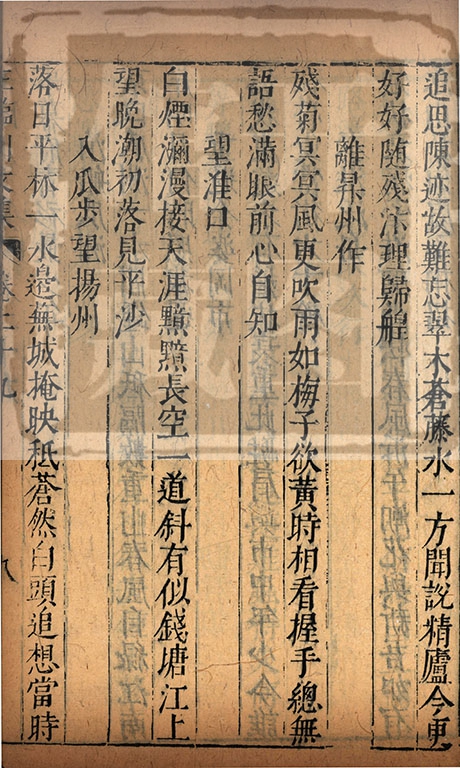 追思陳迹故難忘翠木蒼藤水一方聞說精廬今更
好好隨殘汴理歸艎
離昇州作
殘菊冥冥風更吹雨如梅子欲黃時相看握手總無
語愁滿眼前心自知
望淮口
白煙瀰漫接天涯黯黯長空一道斜有似錢塘江上
望晚潮初落見平沙
入瓜步望揚州
落日平林一水邊蕪城掩映秪蒼然白頭追想當時